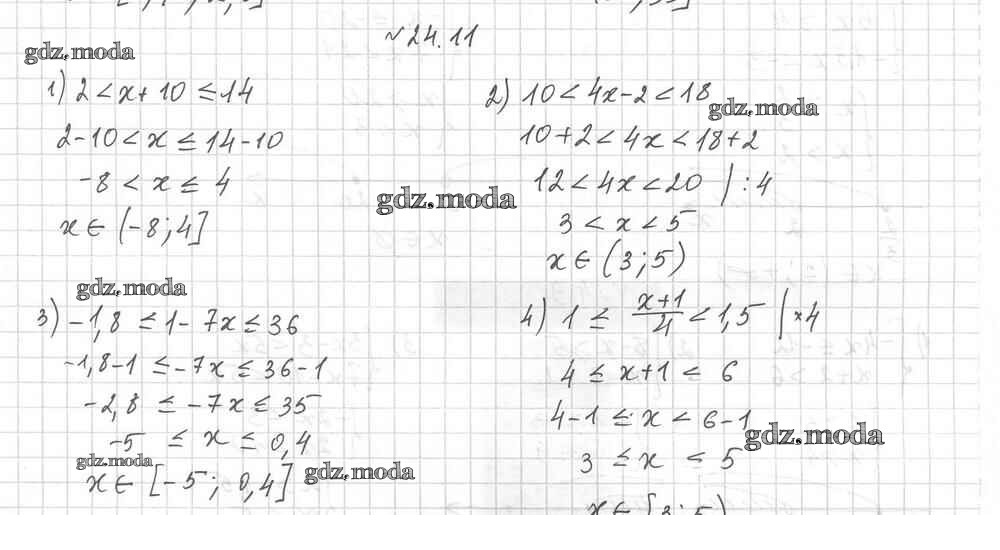 №24.11
gdz.moda
1) 2 < x + 10 ≤ 14
2 - 10 < x ≤ 14 - 10
-8 < x ≤ 4
x ∈ (-8; 4]
2) 10 < 4x - 2 < 18
gdz.moda
10 + 2 < 4x < 18 + 2
12 < 4x < 20 | : 4
gdz.moda
3 < x < 5
x ∈ (3; 5)
gdz.moda
3) -1,8 ≤ 1 - 7x ≤ 36
-1,8 - 1 ≤ -7x ≤ 36 - 1
-2,8 ≤ -7x ≤ 35
-5 ≤ x ≤ 0,4
gdz.moda
x ∈ [-5; 0,4]
gdz.moda
4) 1 ≤ (x+1)/4 < 1,5 | × 4
4 ≤ x + 1 < 6
4 - 1 ≤ x < 6 - 1
gdz.moda
3 ≤ x < 5
x ∈ [3; 5)